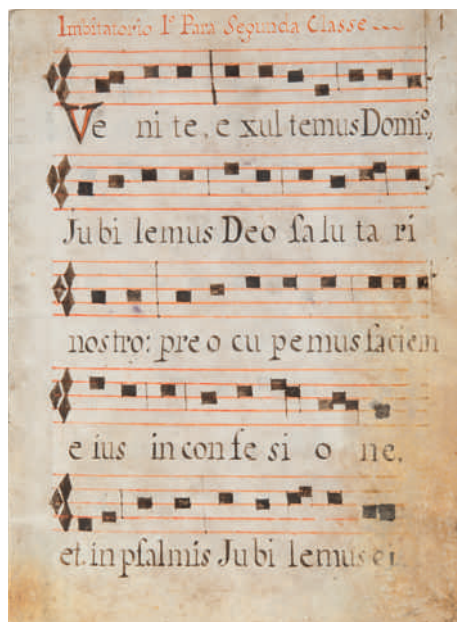 Imbitatorio Iº Para Segunda Classe
1
Ve ni te, e xul temus Domiº,
Ju bi lemus Deo salu ta ri
nostro: pre o cu pemus faciem
e ius in con fe si o ne.
et. in psalmis Ju bi lemus ei